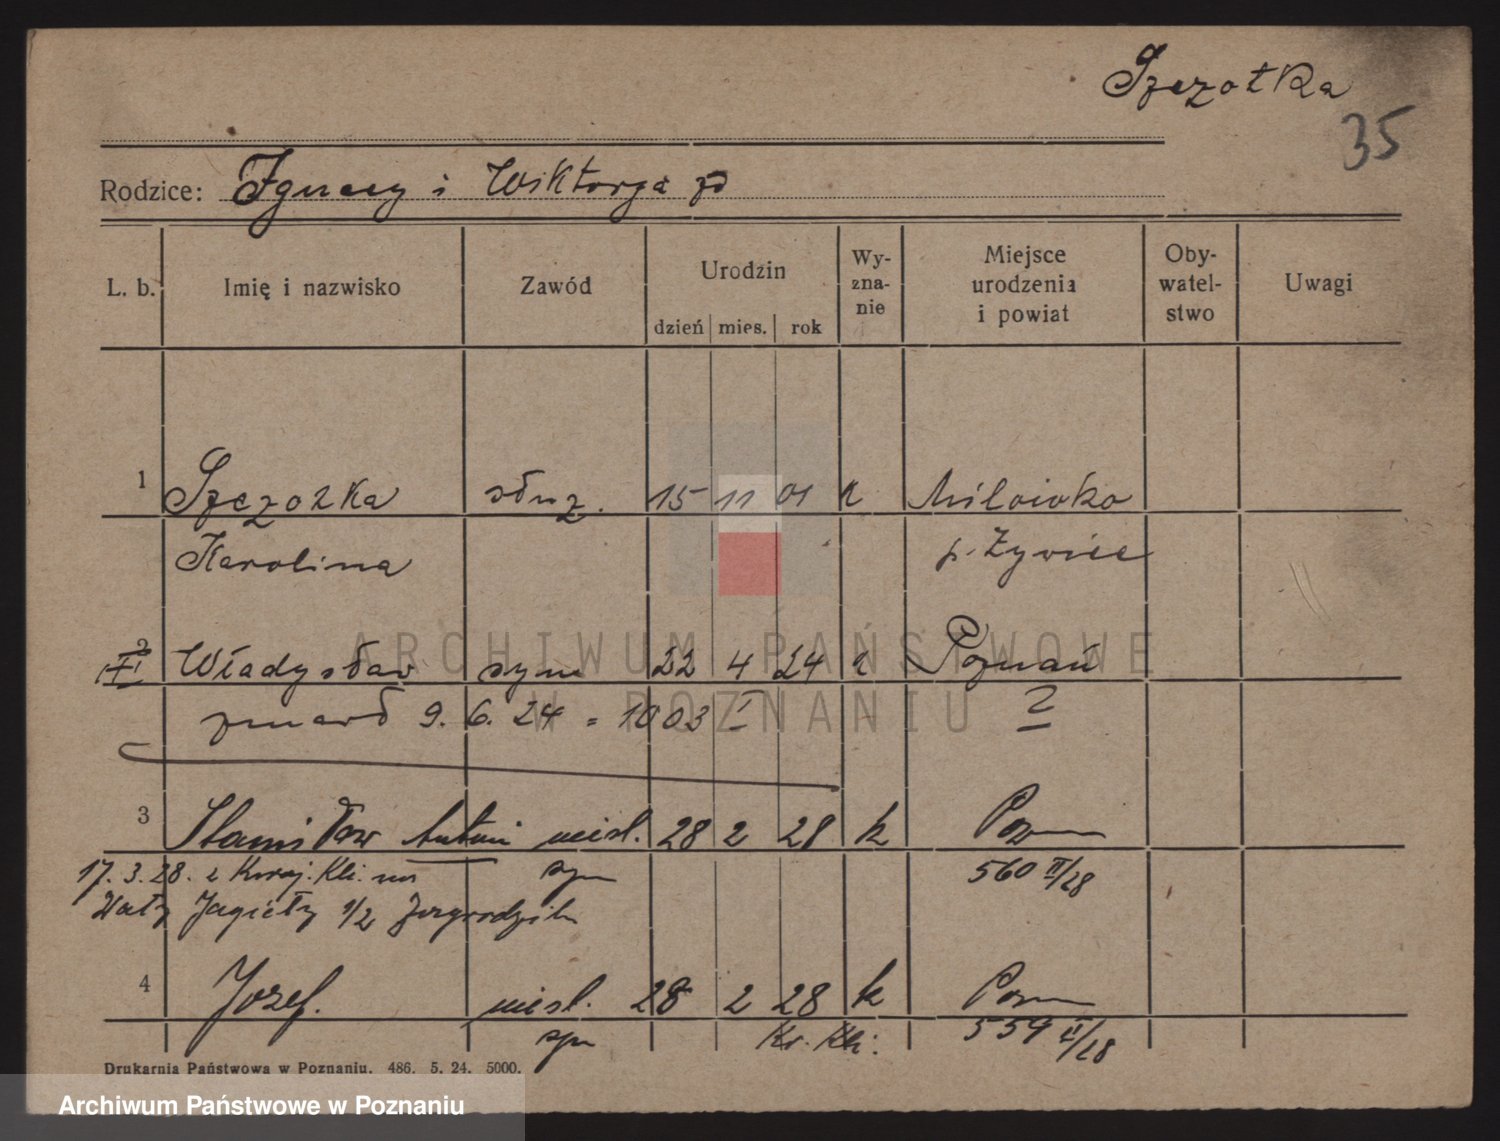 Szczotka
35
Rodzice: Ignacy i Wiktorya
L. b. Imię i nazwisko Zawód Urodzin dzień mies. rok Wy-zna-nie Miejsce urodzenia i powiat Oby-watel-stwo Uwagi
1 Szczotka służ. 15 11 01 k Milówka
Karolina p. Żywiec
2 Władysław syn 22 4 24 k Poznań
zmarł 9. 6. 24 = 1003 I
3 Stanisław Antoni niesl. 28 2 28 k Pozn
17. 3. 28. z Kraj. Kli. na syn 560 II/28
Wały Jagiełły 1/2
4 Jozef. niesl. 28 2 28 k Pozn
syn Kr. Kli. 559 II/28
Drukarnia Państwowa w Poznaniu. 486. 5. 24. 5000.
ARCHIWUM PAŃSTWOWE
W POZNANIU
Archiwum Państwowe w Poznaniu